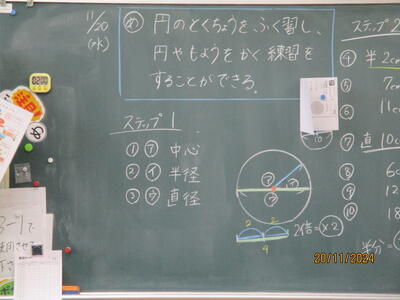 11/20
(水)
め 円のとくちょうを、ふく習し、
円やもようをかく練習を
することができる。
ステップ1
① ア 中心
② イ 半径
③ ウ 直径
ア
イ
ウ
2 2
4
2倍=×2
ステップ2
④ 半 2cm
⑤ 7cm
⑥ 11cm
⑦ 直 10c
⑧ 6c
⑨ 12
⑩ 18
半分=
め
20/11/2024